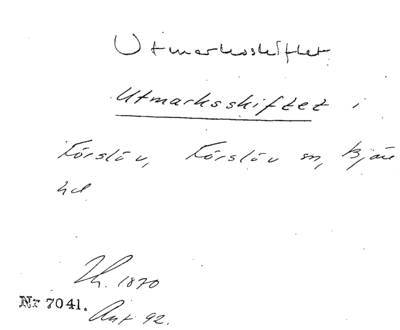 Utmarksskiftet
Utmarksskiftet i
Förslöv, Förslöv sn, Bjäre
hd
Th. 1870
Nr 7041.
Ant 92.